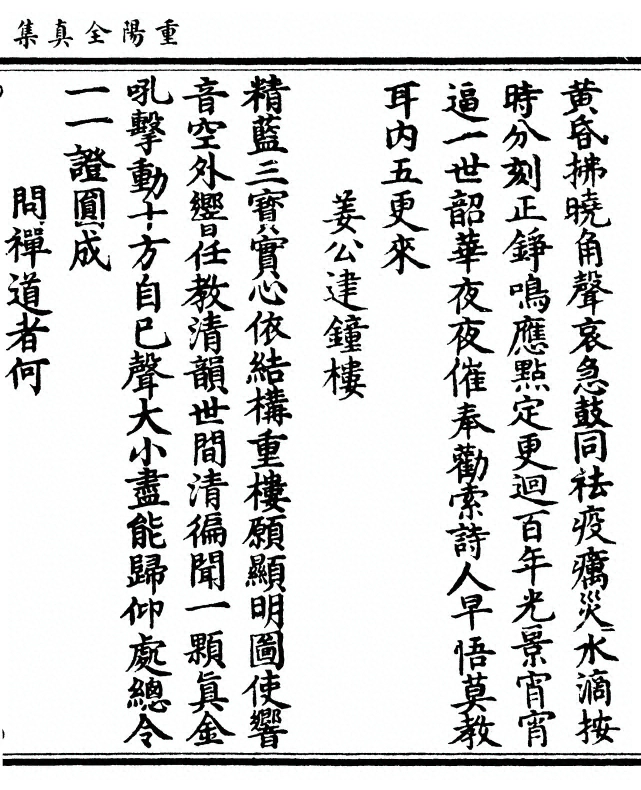 重陽全真集
黃昏拂曉角聲哀急鼓同祛疫癘災水滴按
時分刻正錚鳴應點定更迴百年光景宵宵
逼一世韶華夜夜催奉勸索詩人早悟莫教
耳內五更來
姜公建鐘樓
精藍三寶實心依結構重樓願顯明圖使響
音空外響任教清韻世間清徧聞一顆真金
吼擊動十方自已聲大小盡能歸仰處總令
一一證圓成
問禪道者何